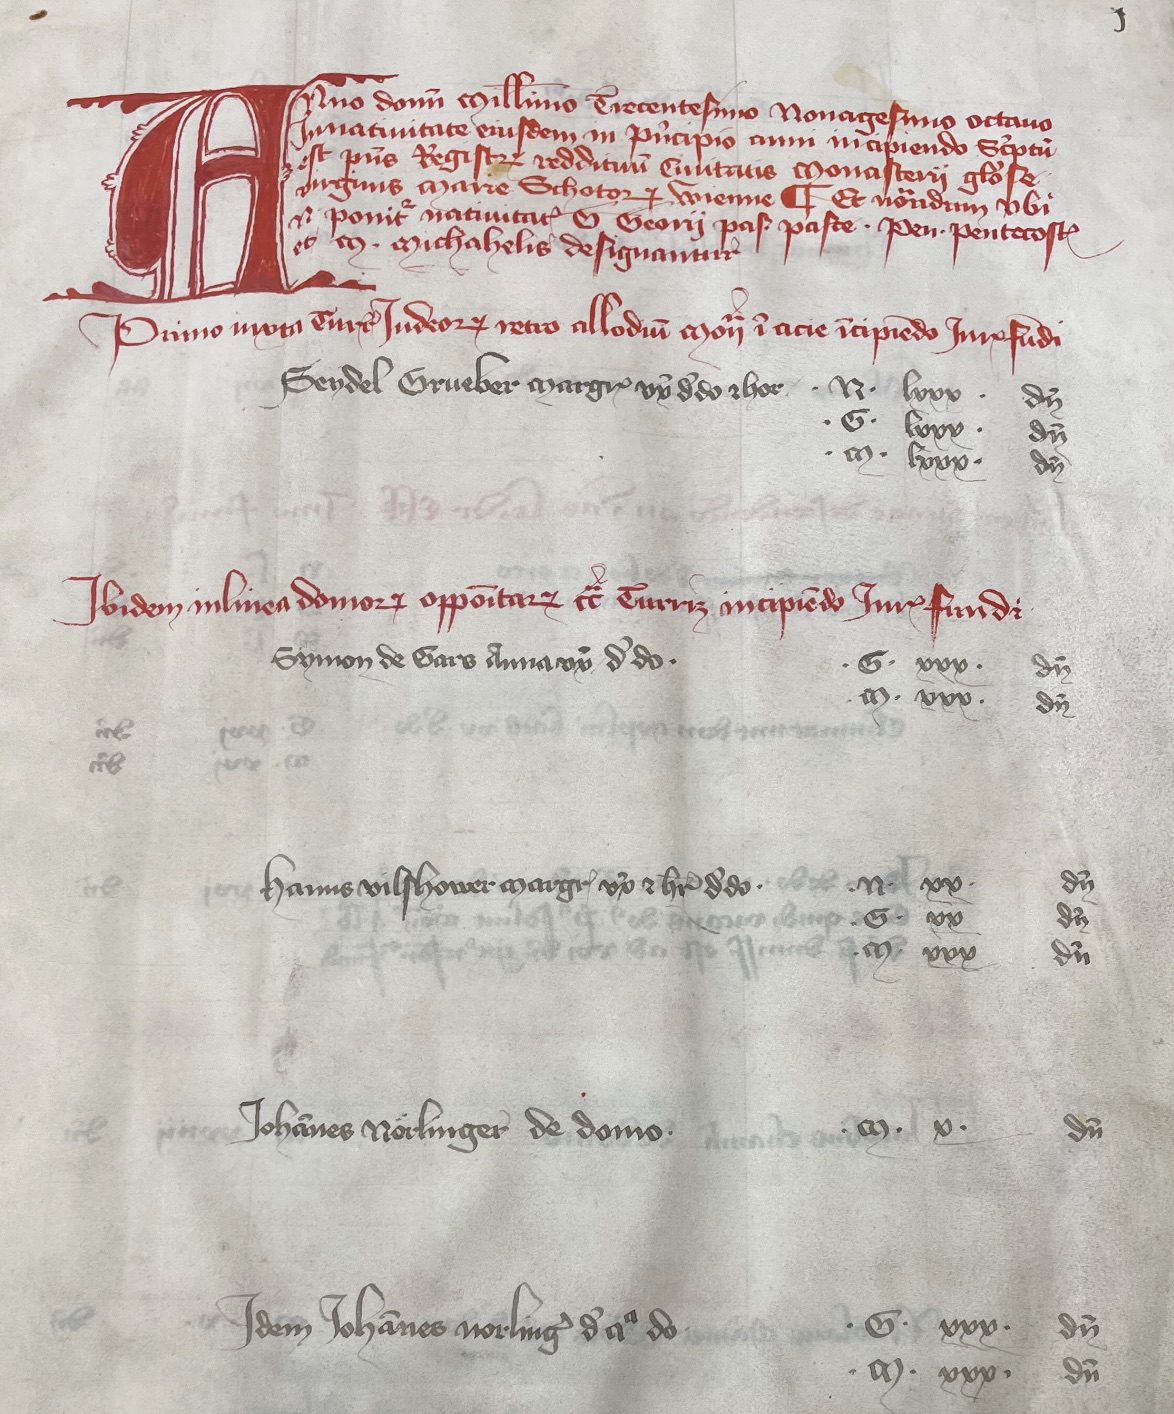 j
Anno domī Millīmo Trecentesimo Nonagesimo octauo
In natiuitate eiusdem in pͥncipio anni incipiendo Scͥptū
est pn̄s Registrꝝ reddituū Ciuitatis Monasterij glo᷒se
uirginis Marie Schotoꝝ wienne ¶ Et notandum vbi
N ponitᷣ natiuitatꝭ G Georij pas· pasce· Pen· pentecostꝭ
et M· Michahelis designantur
Primo iuxta Turrꝭ Judeoꝝ retro allodiū Mon̄ij ī acie īcipiēdo Jurꝭ fūdi
Seydel Grueber Margrꝭ vx̄ d̄ do ⁊ hor · N· lxxx · dn̄
· G· lxxx · dn̄
· M· lxxx· dn̄
Ibidem in linea domoꝝ oppōitaꝝ cc̄ Turris incipiēdo Jurꝭ fundi
Symon de Gars Anna vx̄ d̄ do· · G· xxx· dn̄
M· xxx· dn̄
Hanns vilshouer Margrꝭ vx̄ ⁊ hr̄ d̄ do· · N· xx· dn̄
· G· xx dn̄
· M· xxx dn̄
Johānes Nörlinger de domo· · M· x· dn̄
Idem Johānes norling᷒ d̄ aͣ do · G· xxx· dn̄
· M· xxx· dn̄